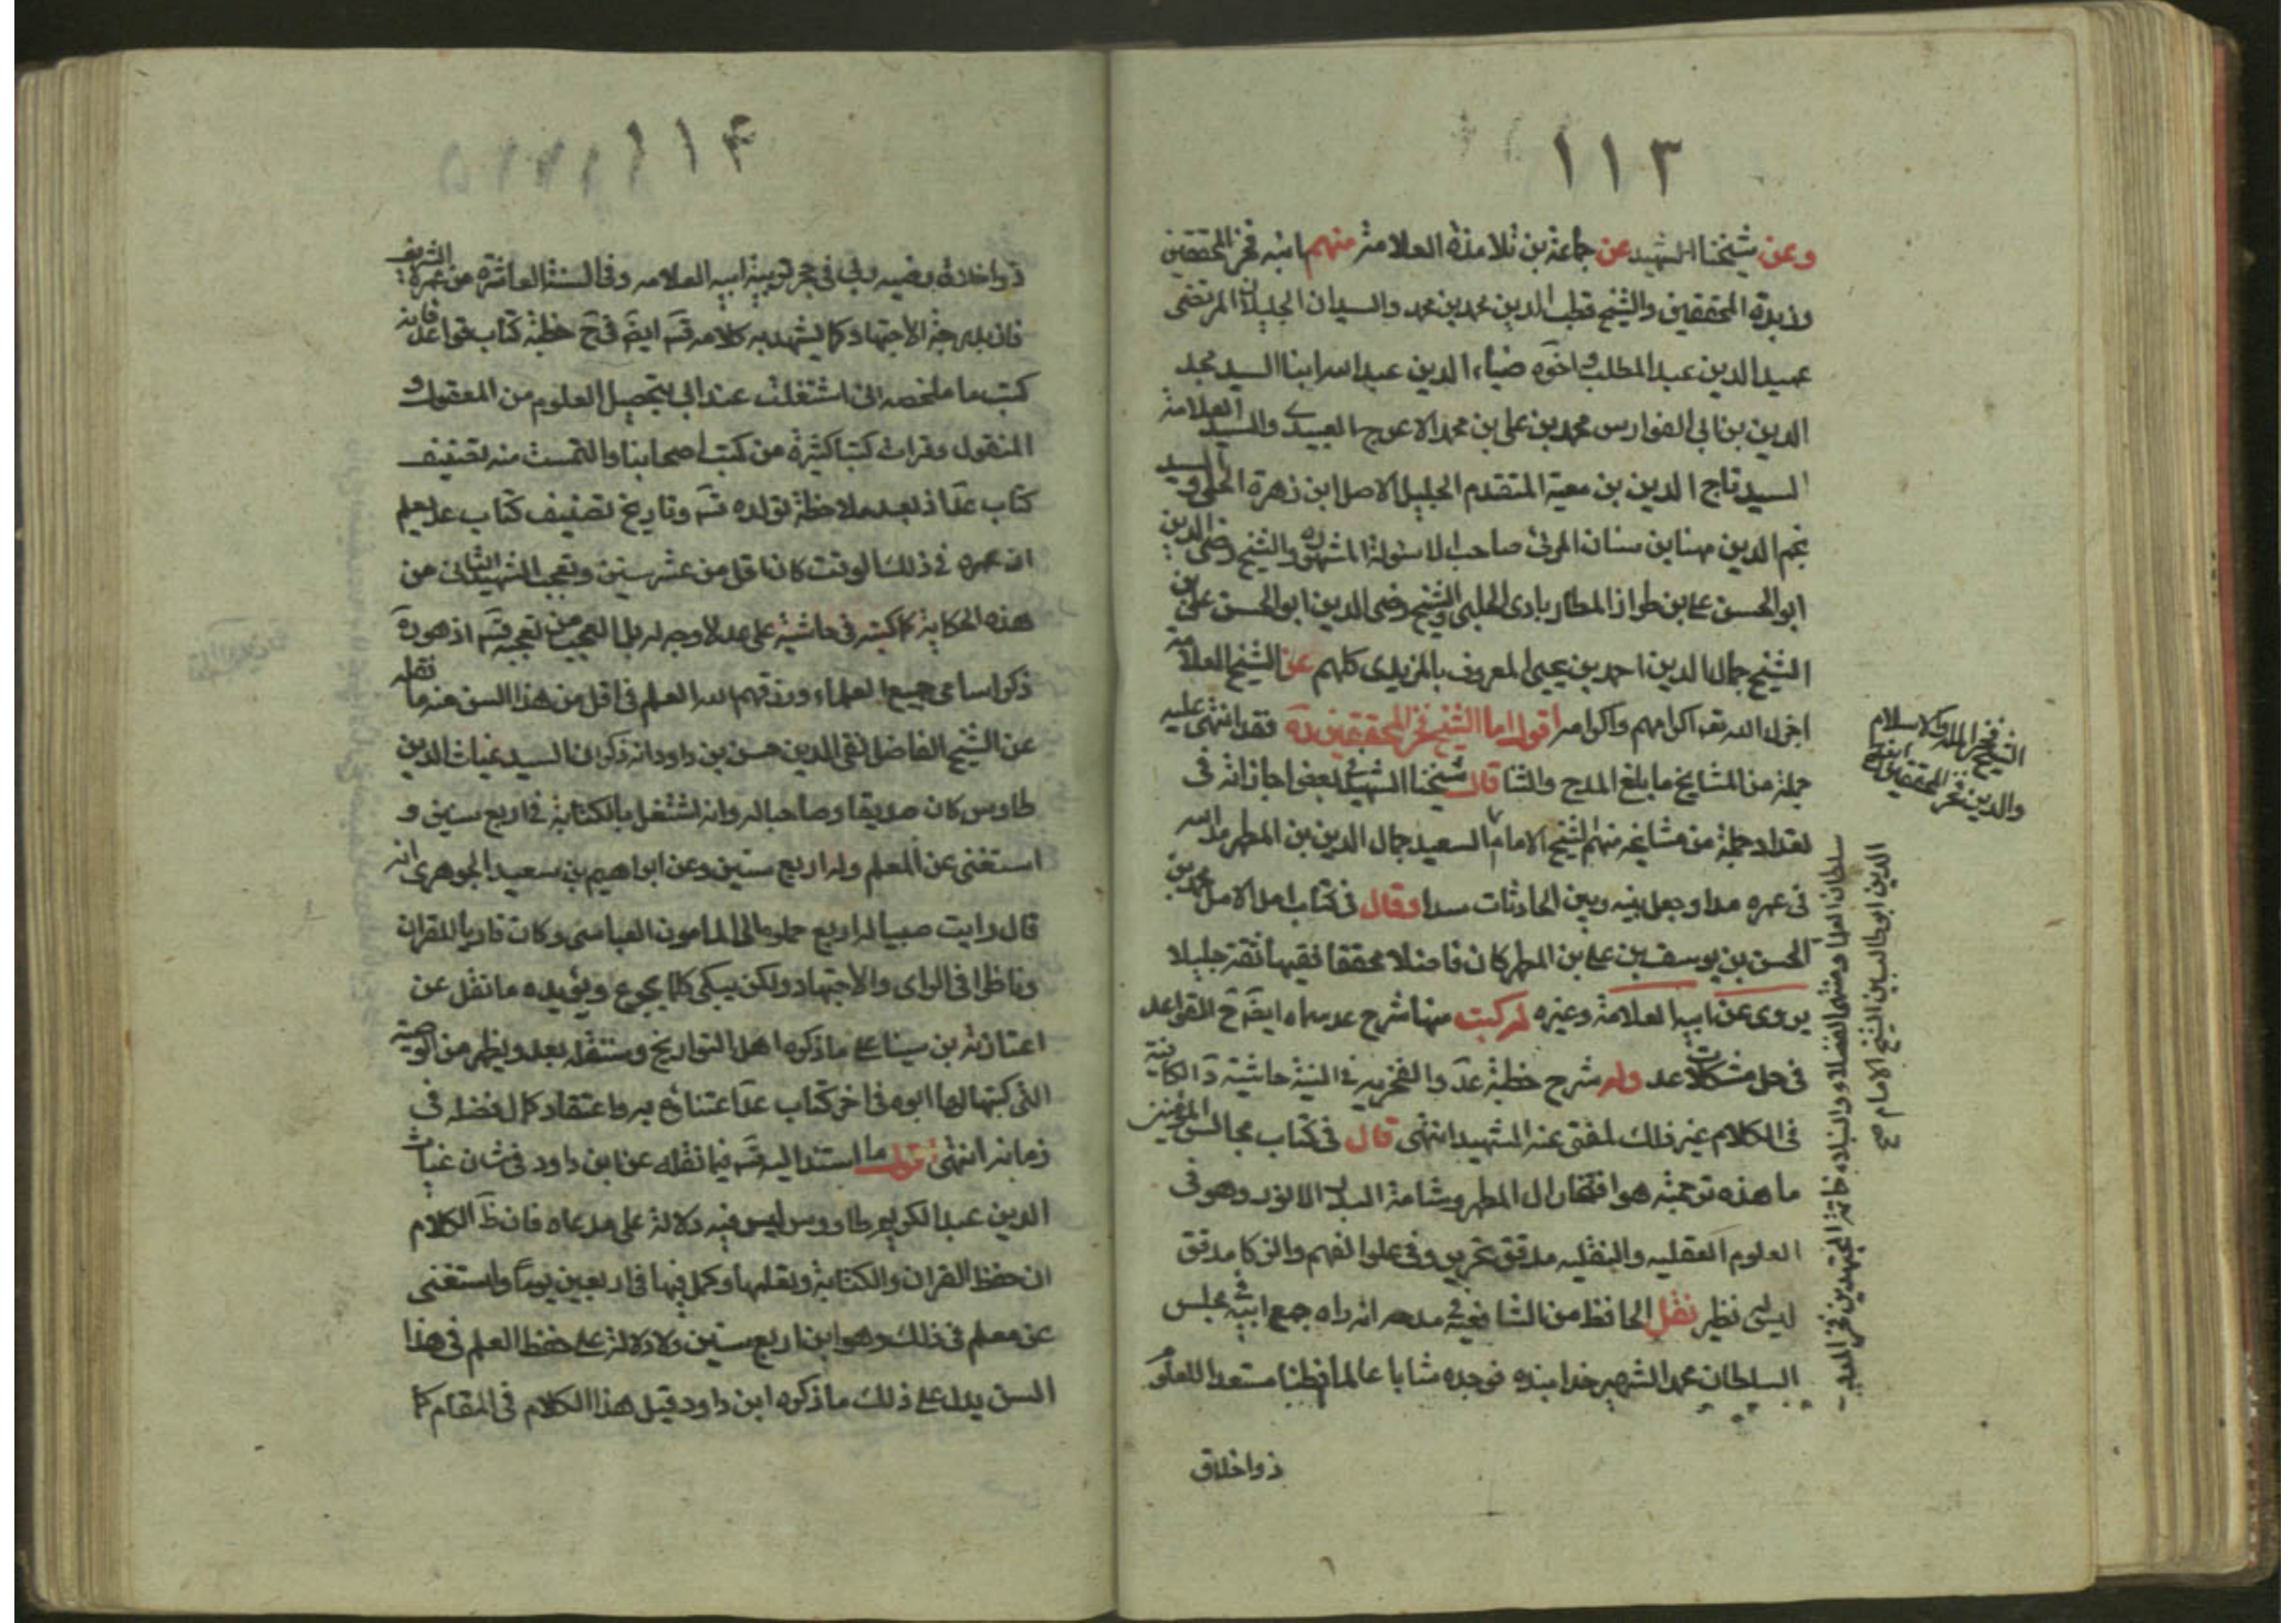 ١١٣
وعن شيخنا الشهيد عن جماعة من تلامذة العلامة منهم ابنه فخر المحققين
وزبدة المحققين والشيخ قطب الدين محمد بن محمد والسيدان الجليلان المرتضى
عميد الدين عبد المطلب واخوه ضياء الدين عبد الله ابنا السيد مجد
الدين بن ابي الفوارس محمد بن علي بن محمد الاعرج العبيدلي والسيد العلامة
السيد تاج الدين بن معية المتقدم الجليل الاصل ابن زهرة الحلبي والسيد
نجم الدين مهنا بن سنان المدني صاحب الاسولة المشهورة والشيخ رضى الدين
ابو الحسن علي بن طراز المطاربادى الحلبي والشيخ رضى الدين ابو الحسن علي بن
الشيخ جمال الدين احمد بن يحيى المعروف بالمزيدى كلهم عن الشيخ العلامة
اجزل الله تعـ اكرامهم واكرامه اقول اما الشيخ فخر المحققين ره فقد انتهى عليه
جملة من المشايخ ما بلغ المدح والثنا قال شيخنا الشهيد في بعض اجازاته فى
تعداد جملة من مشايخه منهم الشيخ الامام السعيد جمال الدين بن المطهر مد الله
فى عمره مدا وجعل بينه وبين الحادثات سدا وقال فى كتاب امل الامل محمد بن
الحسن بن يوسف بن علي بن المطهر كان فاضلا محققا فقيها ثقة جليلا
يروى عن ابيه العلامة وغيره له كتب منها شرح عد سماه ايضاح القواعد
فى حل مشكلات عد وله شرح خطبة عد والفخريه في النية حاشية د الكافية
فى الكلام غير ذلك عنه الشهيد انتهى قال فى كتاب مجالس المؤمنين
ما هذه ترجمته هو افتخار ال المطهر وشامة البدر الانور وهو فى
العلوم العقليه والنقليه مدقق نحرير وفى علو الفهم والذكا مدقق
ليس نظير نقل الحافظ من الشافعية في مدحه انه راه مع ابيه في مجلس
السلطان محمد الشهير خدابنده فوجده شابا عالما فطنا مستعدا للعلوم
ذو اخلاق
الشيخ فخر الملة والاسلام
والدين فخر المحققين
سلطان العلما ومنتهى الفضلا والنبلاء خاتمة المجتهدين فخر الملة
الدين ابو طالب بن الشيخ الامام صح
١١۴
ذو اخلاق رضيه ربى فى حجر تربية ابيه العلامه وفى السنة العاشرة من عمره الشريف
فاز بدرجة الاجتهاد كما يشهد به كلامه قسه ايضا فى ح خطبة كتاب قواعد فانه
كتب ما ملخصه انى اشتغلت عند ابى بتحصيل العلوم من المعقول و
المنقول وقرات كتبا كثيرة من كتب اصحابنا والتمست منه تصنيف
كتاب عد اذ بعد ملاحظة تولده قسه وتاريخ تصنيف كتاب عد يعلم
ان عمره في ذلك الوقت كان اقل من عشر سنين وتعجب الشهيد الثانى من
هذه الحكاية كما كتبه فى حاشية على عد لا وجه له بل العجب من تعجبه قسه اذ هو ره
ذكر اسامى جميع العلماء ورزقهم الله العلم فى اقل من هذا السن منه ما نقله
عن الشيخ الفاضل تقى الدين حسن بن داود انه ذكر ان السيد غياث الدين
طاوس كان صديقا وصاحبا له وانه اشتغل بالكتابة في اربع سنين و
استغنى عن المعلم وله اربع سنين وعن ابراهيم بن سعيد الجوهرى انه
قال رايت صبيا له اربع حملوه الى المامون العباسى وكان قاريا للقران
وناظرا فى الراى والاجتهاد ولكن يبكى كلما يجوع ويؤيده ما نقل عن
بن سينا على ما ذكره اهل التواريخ وسننقله بعد ويظهر من الوصية
التى كتبها لها ابوه فى اخر كتاب عد به واعتقاد كمال فضله فى
زمانه انتهى قول ما استند اليه قسه فيما نقله عن ابن داود فى شان غياث
الدين عبد الكريم طاووس ليس فيه دلالة على مدعاه فان ظ الكلام
ان حفظ القران والكتابة وتعلمها وكمل فيها فى اربعين يوما واستغنى
عن معلم فى ذلك وهو ابن اربع سنين ولا دلالة على حفظ العلم فى هذا
السن يدل على ذلك ما ذكره ابن داود قبل هذا الكلام فى المقام كما